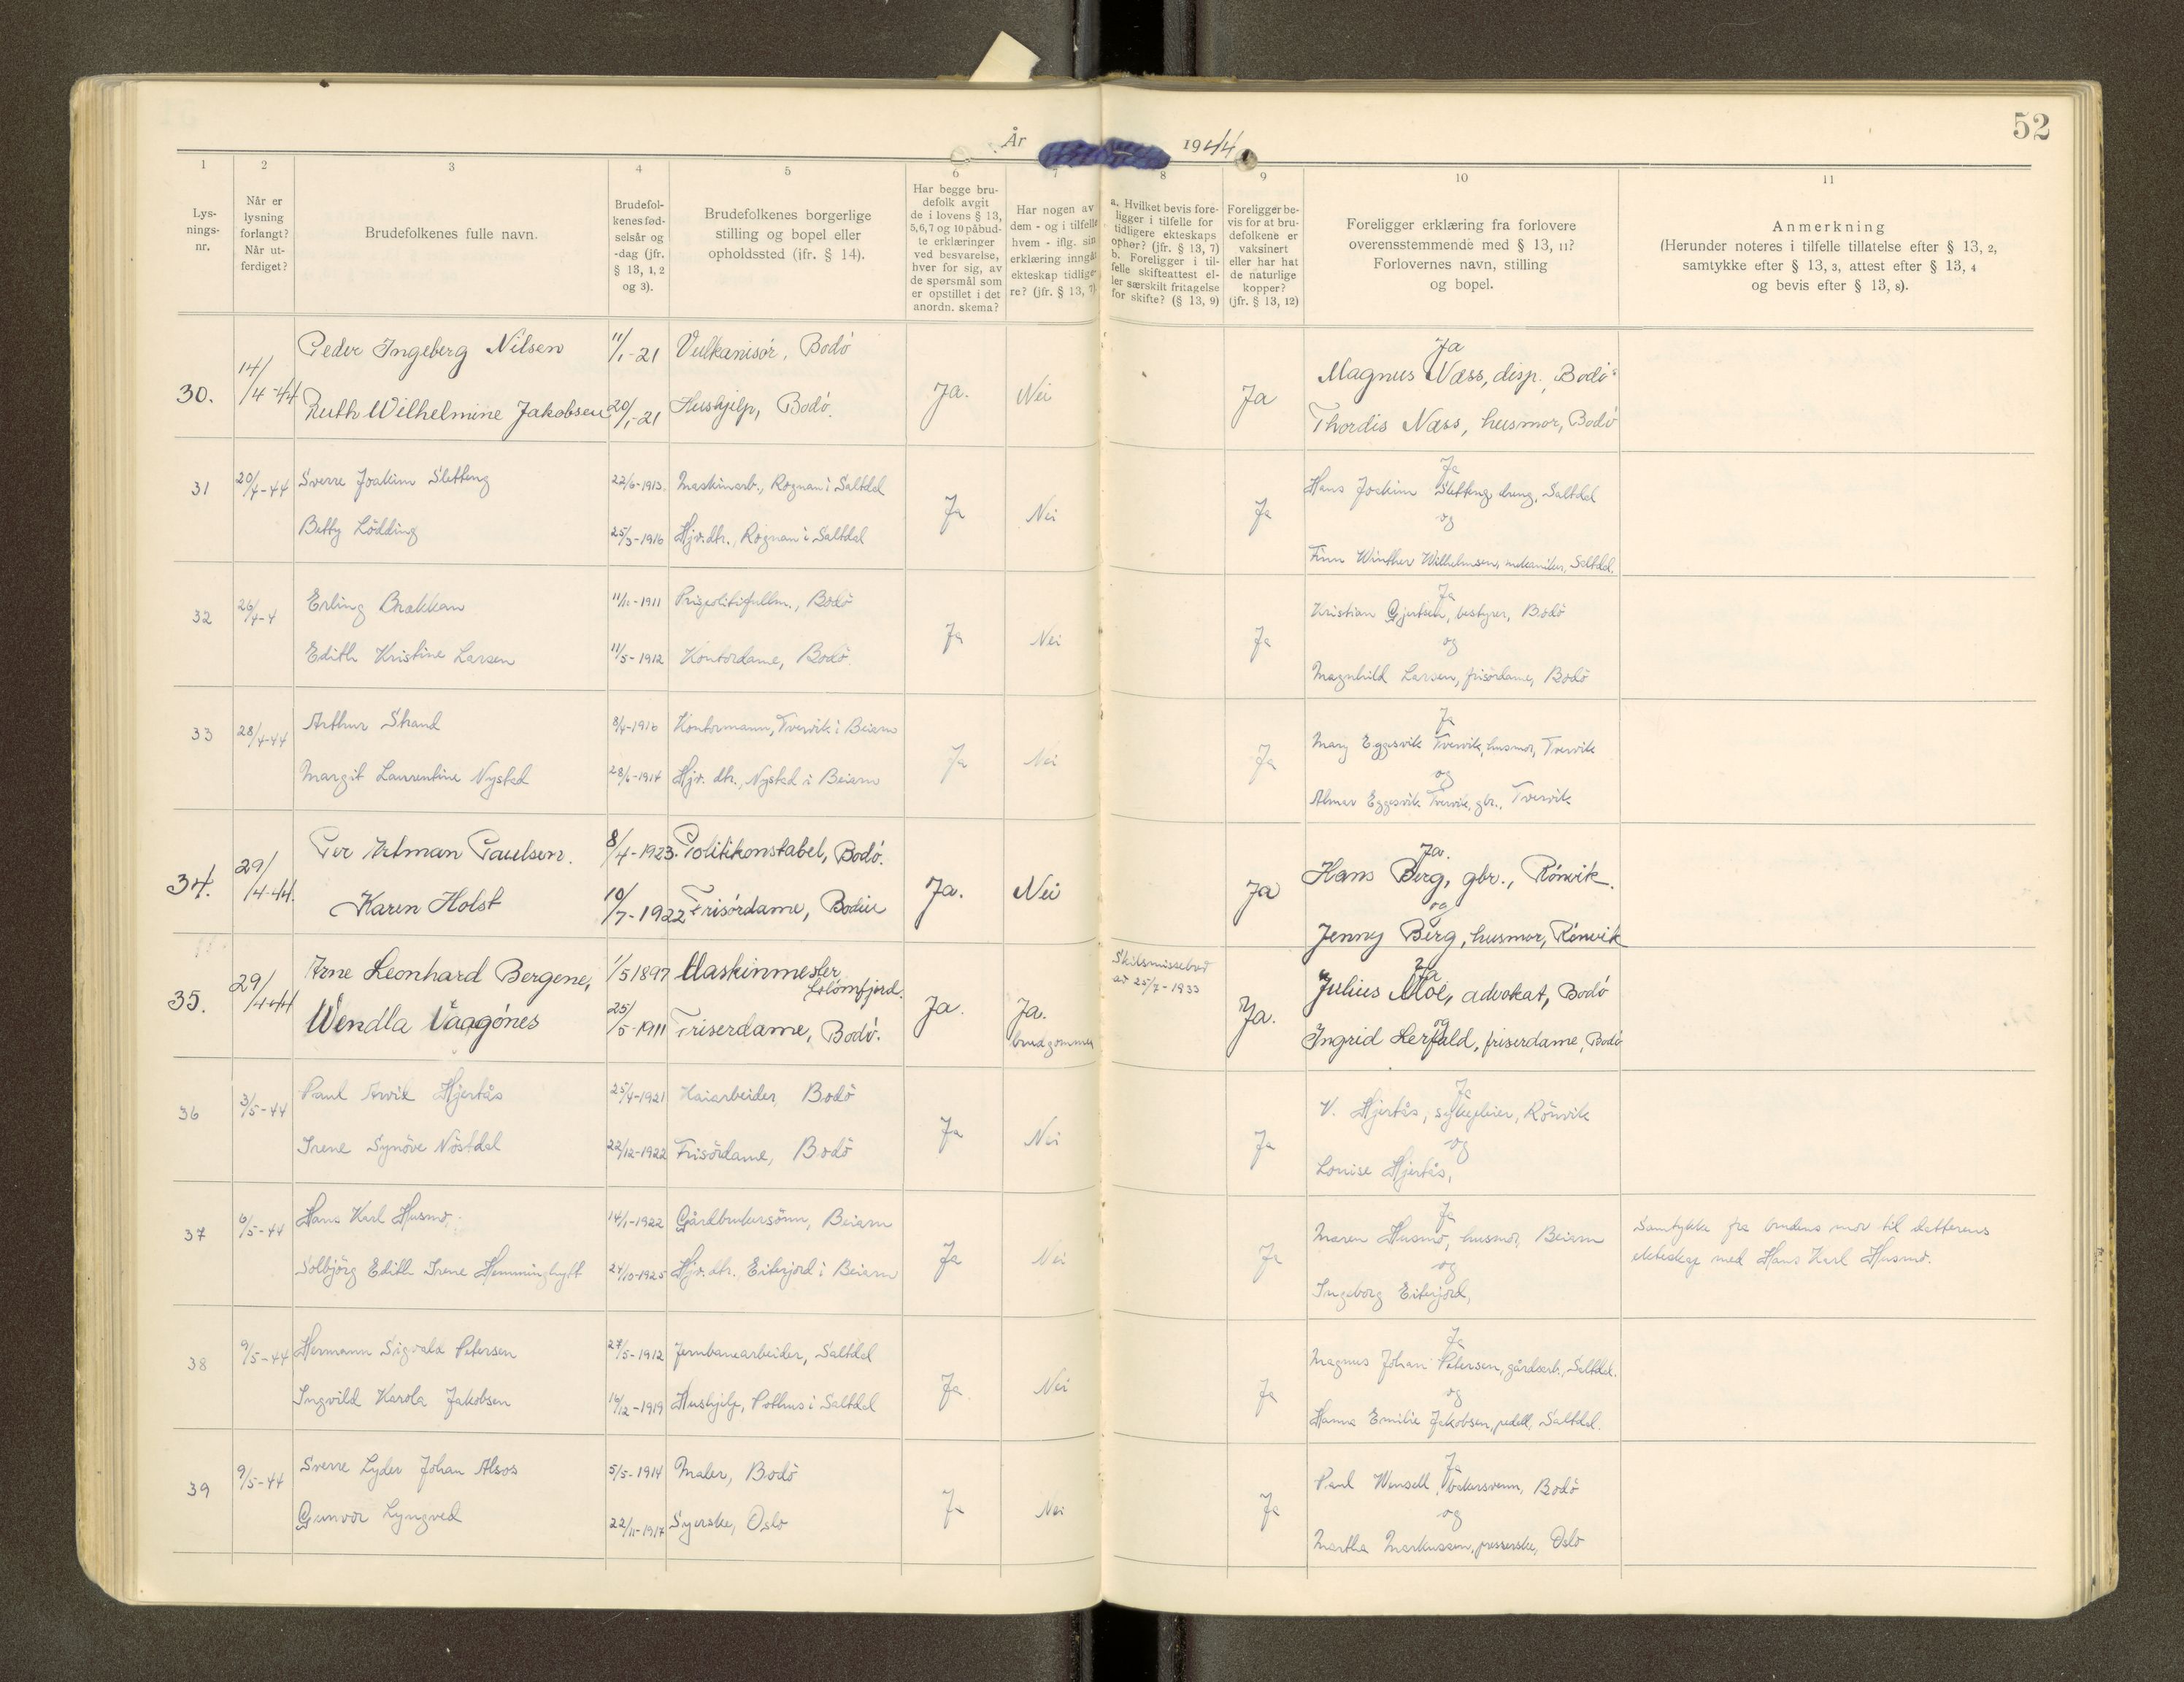 52
År 1944
1
2
3
4
5
6
7
8
9
10
11
Lysningsnr.
Når er lysning forlangt? Når utferdiget?
Brudefolkenes fulle navn.
Brudefolkenes fødselsår og -dag (jfr. § 13, 1, 2 og 3).
Brudefolkenes borgerlige stilling og bopel eller opholdssted (jfr. § 14).
Har begge brudefolk avgit de i lovens § 13, 5, 6, 7 og 10 påbudte erklæringer ved besvarelse, hver for sig, av de spørsmål som er opstillet i det anordn. skema?
Har nogen av dem - og i tilfelle hvem - iflg. sin erklæring inngått ekteskap tidligere? (jfr. § 13, 7)
a. Hvilket bevis foreligger i tilfelle for tidligere ekteskaps ophør? (jfr. § 13, 7) b. Foreligger i tilfelle skifteattest eller særskilt fritagelse for skifte? (§ 13, 9)
Foreligger bevis for at brudefolkene er vaksinert eller har hat de naturlige kopper? (jfr. § 13, 12)
Foreligger erklæring fra forlovere overensstemmende med § 13, 11? Forlovernes navn, stilling og bopel.
Anmerkning (Herunder noteres i tilfelle tillatelse efter § 13, 2, samtykke efter § 13, 3, attest efter § 13, 4 og bevis efter § 13, 8).
30. 14/4-44 Peder Ingeberg Nilsen 11/1-21 Vulkanisør, Bodø
Ruth Wilhelmine Jakobsen 20/1-21 Hushjelp, Bodø.
Ja. Nei Ja
Ja
Magnus Næss, disp., Bodø
Thordis Næss, husmor, Bodø
31 20/4-44 Sverre Joakim Sletteng 22/6-1913. Maskinarb., Rognan i Saltdal
Betty Lødding 25/3-1916 Hjv. dtr., Rognan i Saltdal
Ja Nei Ja
Ja
Hans Joakim Sletteng, Saltdal
og
Finn Winther Wilhelmsen, mekaniker, Saltdal.
32 26/4-4 Erling Brakkan 11/11-1911 Bodø
Edith Kristine Larsen 11/5-1912 Kontordame, Bodø.
Ja Nei Ja
Ja
Kristian Gjertsen, bestyrer, Bodø
og
Magnhild Larsen, frisørdame, Bodø
33 28/4-44 Arthur Strand Kontormann, Tvervik i Beiarn
Margit Laurentine Nystad 28/6-1914 Hjv. dtr., Nystad i Beiarn
Ja Nei Ja
Ja
Mary Eggesvik Tvervik, husmor, Tvervik
og
Almar Eggesvik Tvervik, gbr., Tvervik
34. 29/4-44. Per Artman Paulsen. 8/4-1923. Politikonstabel, Bodø.
Karen Holst 10/7-1922 Frisørdame, Bodin
Ja. Nei Ja
Ja.
Hans Berg, gbr., Rønvik.
og
Jenny Berg, husmor, Rønvik
35. 29/4-44 Arne Leonhard Bergene, 1/5 1897 Maskinmester Glomfjord.
Wendla Vaagønes 25/5-1911 Friserdame, Bodø.
Ja. Ja. brudgommen
Skilsmissebrev av 25/7-1933
Ja.
Ja
Julius Moe, advokat, Bodø
og
Ingrid Lerfald, friserdame, Bodø
36 3/5-44 Paul Arvik Hjertås 25/4-1921 Kaiarbeider, Bodø
Irene Synøve Nøstdal 22/12-1922 Frisørdame, Bodø
Ja Nei Ja
Ja
V. Hjertås, Rønvik
og
Louise Hjertås,
37 6/5-44 Hans Karl Husmo, 14/1-1922 Gårdbrukersønn, Beiarn
Solbjørg Edith Irene Hemminghytt 24/10-1925 Hjv. dtr., Eiterjord i Beiarn
Ja Nei Ja
Ja
Maren Husmo, husmor, Beiarn
og
Ingeborg Eiterjord,
Samtykke fra brudens mor til datterens
ekteskap med Hans Karl Husmo.
38 9/5-44 Hermann Sigvald Petersen 27/5-1912 Jernbanearbeider, Saltdal
Ingvild Karola Jakobsen 16/12-1919 Hushjelp, Pothus i Saltdal
Ja Nei Ja
Ja
Magnus Johan Petersen, gårdsarb., Saltdal.
og
Hanna Emilie Jakobsen, pedell, Saltdal.
39 9/5-44 Sverre Lyder Johan Alsos 5/5-1914 Maler, Bodø
Gunvor Lyngved 22/11-1917 Syerske, Oslo
Ja Nei Ja
Ja
Paul Wensell, bakersvenn, Bodø
og
Martha Markussen, presserske, Oslo